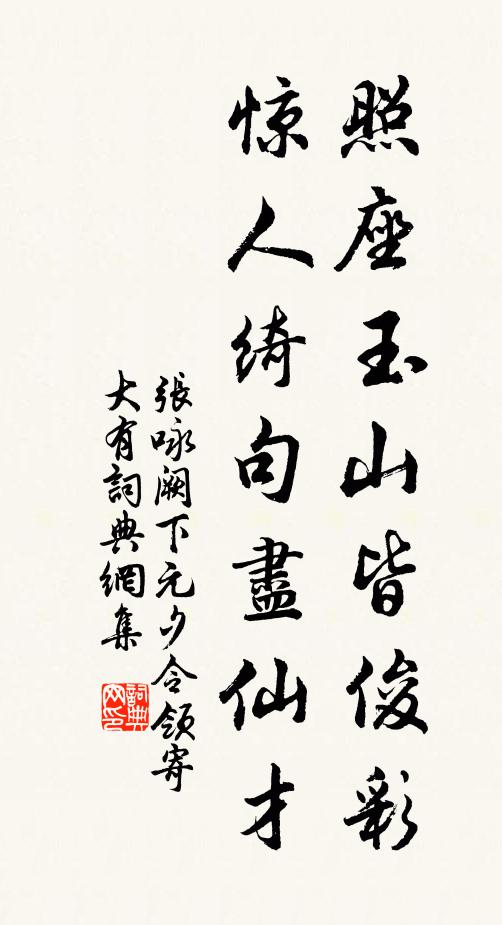 照座玉山皆俊彩
惊人绮句盡仙才
張咏阙下元夕令领寄
大有詞典網集
詞典网印